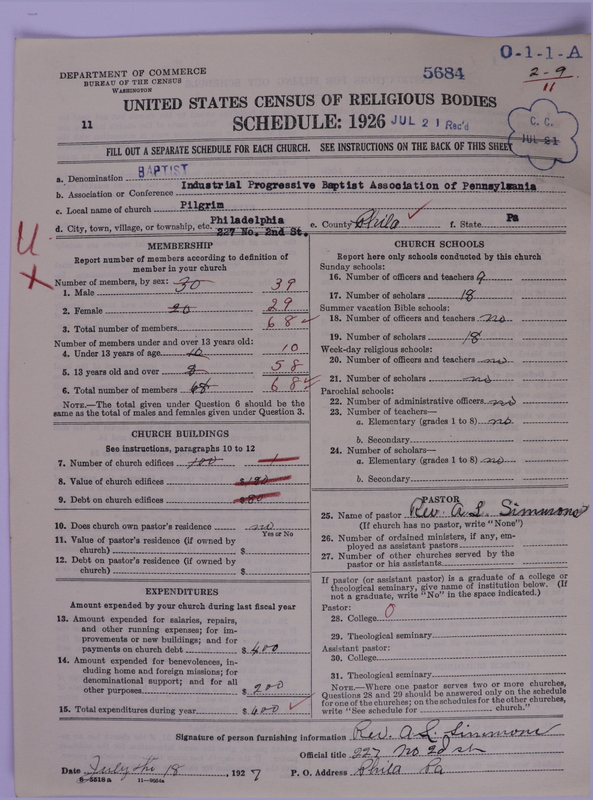 O-1-1-A
DEPARTMENT OF COMMERCE
BUREAU OF THE CENSUS
WASHINGTON
5684
2-9
11
UNITED STATES CENSUS OF RELIGIOUS BODIES
11
SCHEDULE: 1926 JUL 21 Rec'd
C. C.
JUL 21
FILL OUT A SEPARATE SCHEDULE FOR EACH CHURCH. SEE INSTRUCTIONS ON THE BACK OF THIS SHEET
a. Denomination BAPTIST
b. Association or Conference Industrial Progressive Baptist Association of Pennsylvania
c. Local name of church Pilgrim
d. City, town, village, or township, etc. Philadelphia 227 No. 2nd St. e. County Phila f. State Pa
MEMBERSHIP
Report number of members according to definition of member in your church
Number of members, by sex:
1. Male 30 39
2. Female 20 29
3. Total number of members 68
Number of members under and over 13 years old:
4. Under 13 years of age 10 10
5. 13 years old and over 8 58
6. Total number of members 68 68
NOTE.—The total given under Question 6 should be the same as the total of males and females given under Question 3.
CHURCH BUILDINGS
See instructions, paragraphs 10 to 12
7. Number of church edifices 100 1
8. Value of church edifices $180
9. Debt on church edifices $80
10. Does church own pastor's residence no
Yes or No
11. Value of pastor's residence (if owned by church) $
12. Debt on pastor's residence (if owned by church) $
EXPENDITURES
Amount expended by your church during last fiscal year
13. Amount expended for salaries, repairs, and other running expenses; for improvements or new buildings; and for payments on church debt $400
14. Amount expended for benevolences, including home and foreign missions; for denominational support; and for all other purposes $200
15. Total expenditures during year $600
CHURCH SCHOOLS
Report here only schools conducted by this church
Sunday schools:
16. Number of officers and teachers 9
17. Number of scholars 18
Summer vacation Bible schools:
18. Number of officers and teachers no
19. Number of scholars 18
Week-day religious schools:
20. Number of officers and teachers no
21. Number of scholars no
Parochial schools:
22. Number of administrative officers no
23. Number of teachers—
a. Elementary (grades 1 to 8) no
b. Secondary
24. Number of scholars—
a. Elementary (grades 1 to 8) no
b. Secondary
PASTOR
25. Name of pastor Rev. A L. Simmons
(If church has no pastor, write "None")
26. Number of ordained ministers, if any, employed as assistant pastors
27. Number of other churches served by the pastor or his assistants
If pastor (or assistant pastor) is a graduate of a college or theological seminary, give name of institution below. (If not a graduate, write "No" in the space indicated.)
Pastor:
28. College 0
29. Theological seminary
Assistant pastor:
30. College
31. Theological seminary
NOTE.—Where one pastor serves two or more churches, Questions 28 and 29 should be answered only on the schedule for one of the churches; on the schedules for the other churches, write "See schedule for church."
Signature of person furnishing information Rev. A L. Simmons
Official title 227 No 2d st
Date July the 18, 1927 P. O. Address Phila Pa
8-5518a 11-9054a